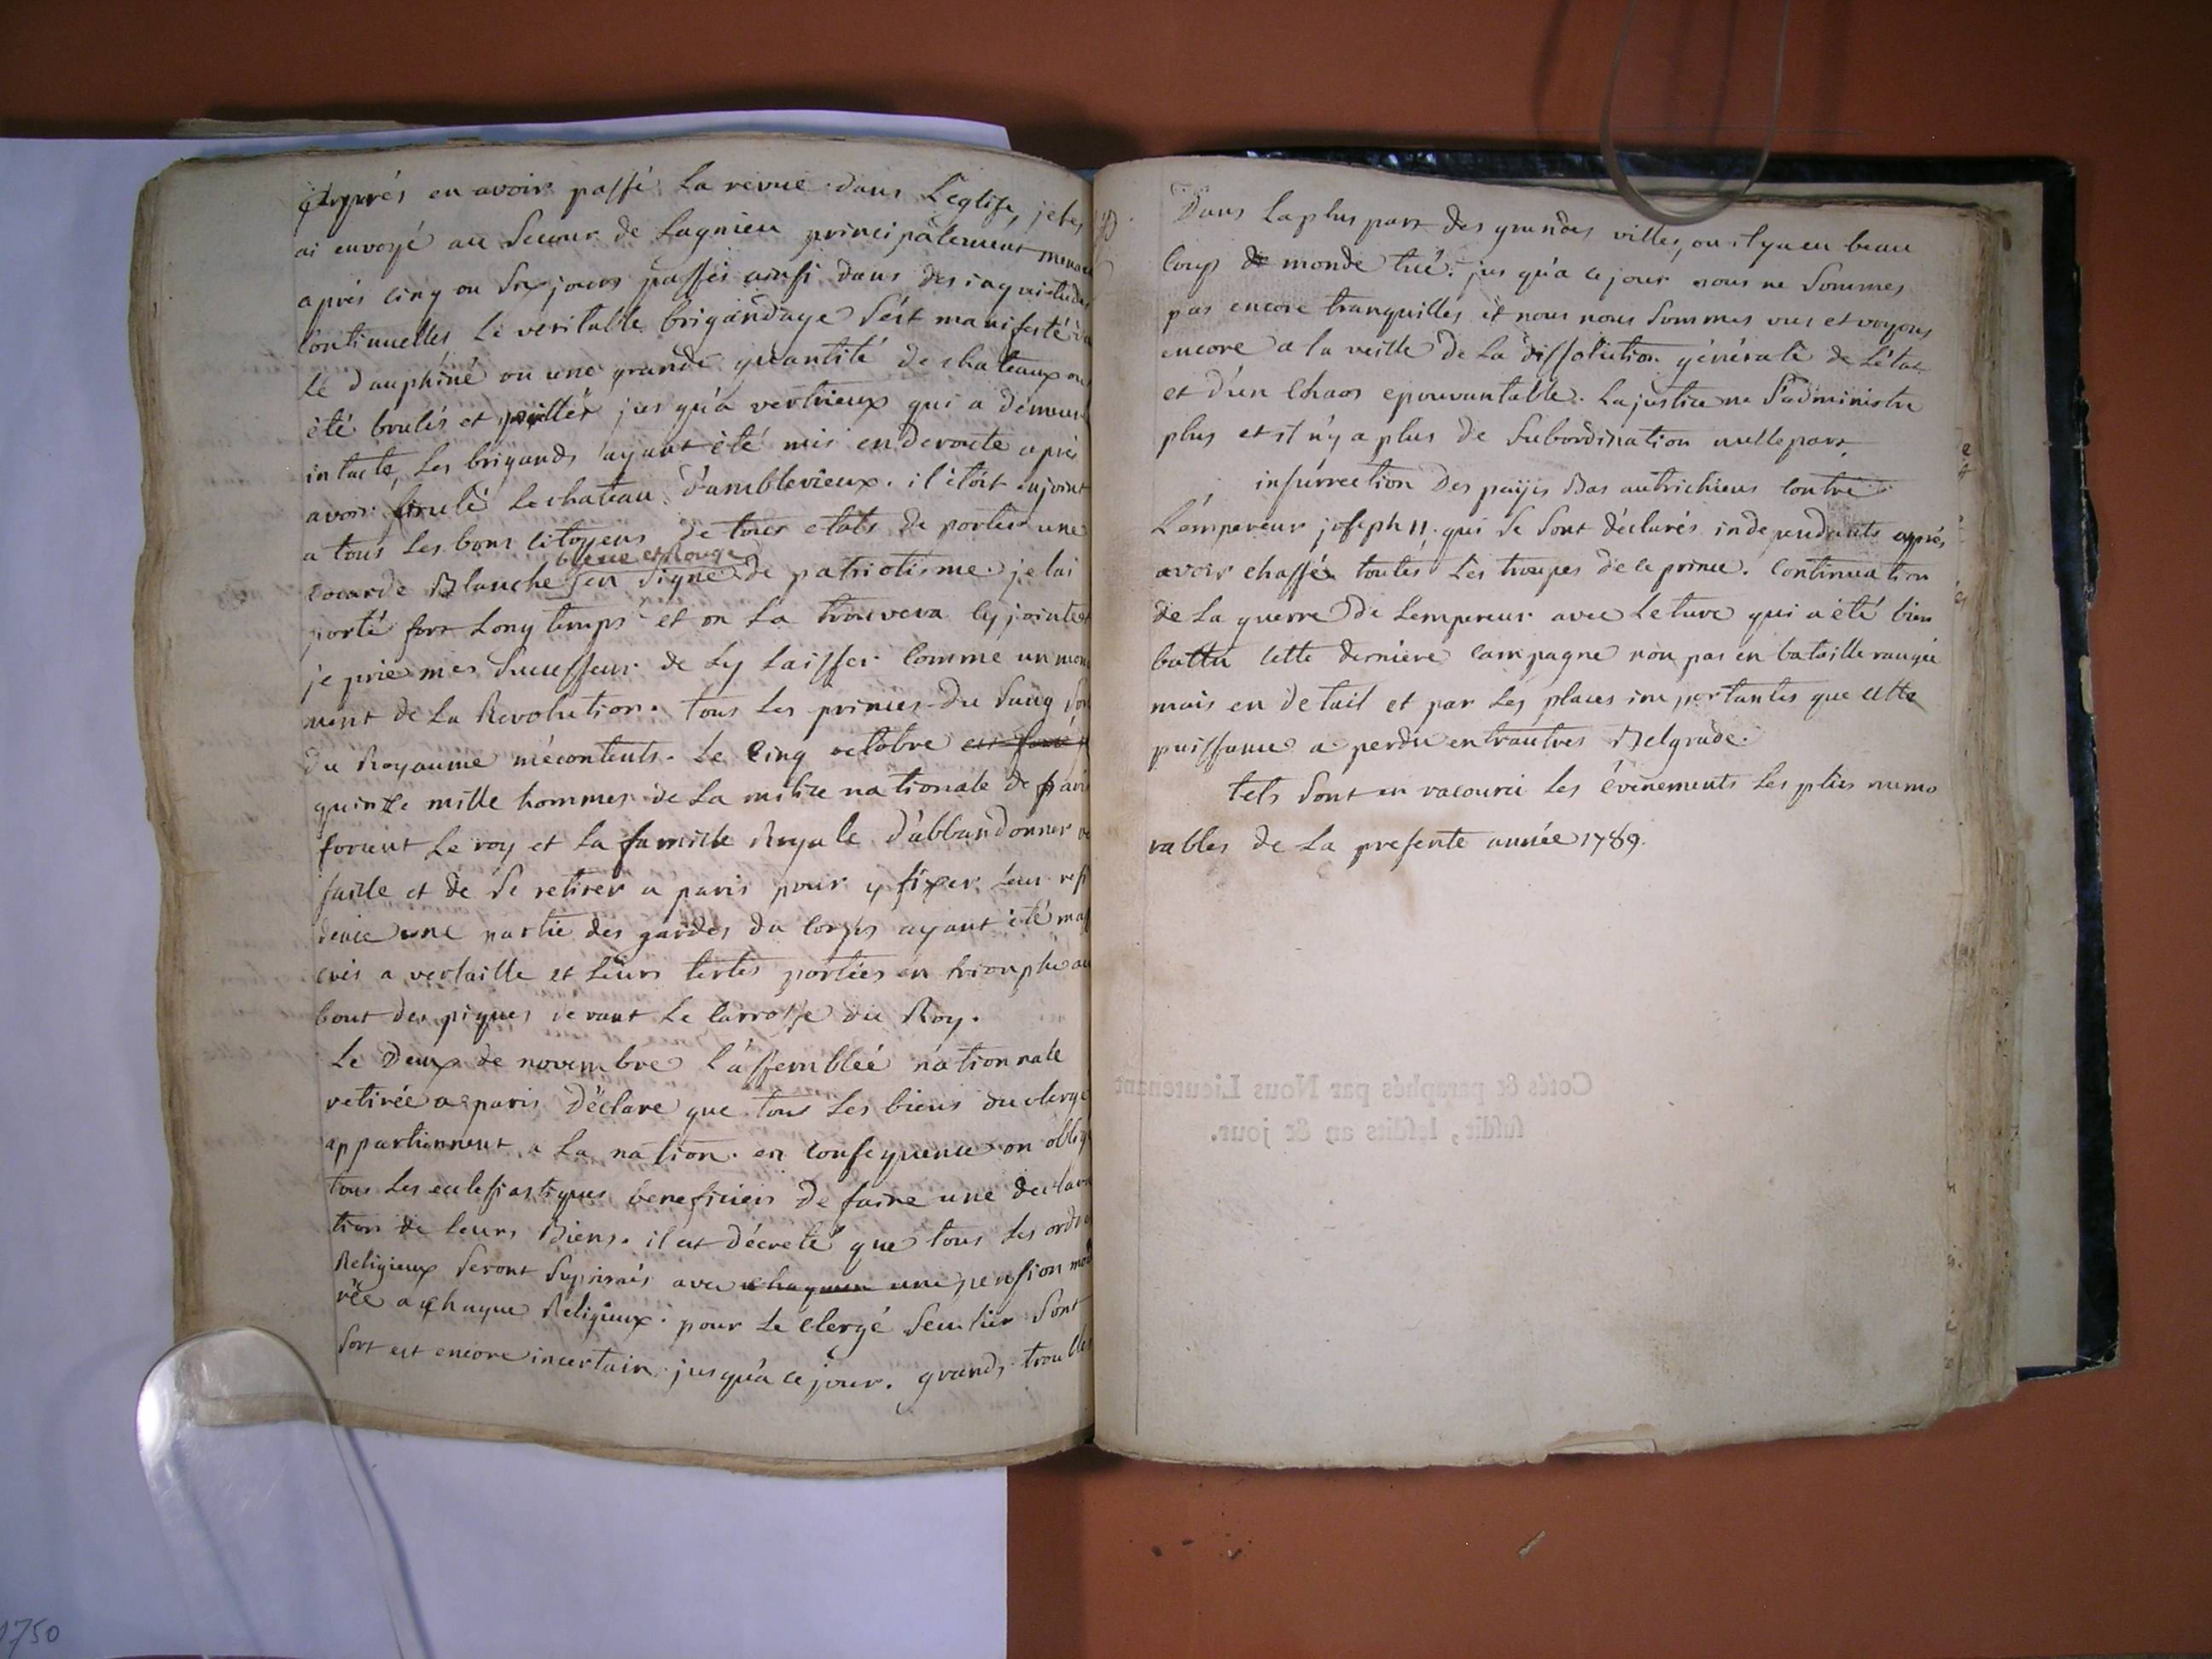 apprés en avoir passé la revue dans L'eglise, je les
ai envoyé au secour de Lagnieu principalement
aprés cinq ou six jours passés ainsi dans des inquietudes
continuelles le veritable brigandage s'est manifesté
le dauphiné ou une grande quantité de chateaux
été brulés et pillés jusqu'a vertrieux qui a demeur
intacte, les brigands ayant été mis en deroute aprés
avoir brulé le chateau d'amblerieux. il étoit enjoint
a tous les bons citoyens de tous etats de porter une
bleue et rouge
cocarde Blanche en signe de patriotisme. je lai
porté fort long temps et on la trouvera cy jointe
je prie mes successeur de ly laisser comme un monu
ment de la Revolution. tous les princes du sang
du Royaume mécontents. Le cinq octobre
quinze mille hommes de la milice nationale de paris
forcent le roy et la famille Royale d'abbandonner
saille et de se retirer a paris pour y fixer leur resi
dence une partie des gardes du corps ayant été mas
crés a versaille et leurs tertes portées en triomphe au
bout des piques devant le carrosse du Roy.
Le Deux de novembre L'assemblée nationnale
retirée a paris Déclare que tous les biens du clergé
appartiennent a la nation. en consequence on oblige
tous les eclesiastiques beneficiers de faire une declara
tion de leurs Biens. il est décreté que tous les ordres
Religieux seront suprimés avec chaquun une pension
rée a chaque Religieux. pour le clergé seculier sont
sort est encore incertain jusqu'a ce jour. grands troubles
Dans la plus part des grandes villes, ou il y a eu beau
coup de monde tué. jus qu'a ce jour nous ne sommes
pas encore tranquilles et nous nous sommes vus et voyons
encore a la veille de la dissolution générale de L'état
et d'un Chaos epouvantable. La justice ne s'administre
plus et il n'y a plus de subordination nulle part.
insurrection Des païis Bas autrichiens contre
L'empereur joseph II. qui se sont déclarés independants apprés
avoir chassés toutes les troupes de ce prince. Continuation
de la guerre de L'empereur avec le turc qui a été bien
battu cette derniere campagne non pas en bataille rangée
mais en detail et par les places importantes que cette
puissance a perdu entrautres Belgrade.
tels sont en racourci les évenements les plus memo
rables de la presente année 1789.
Cotés & paraphés par Nous Lieutenant
susdit, lesdits an & jour.
1750